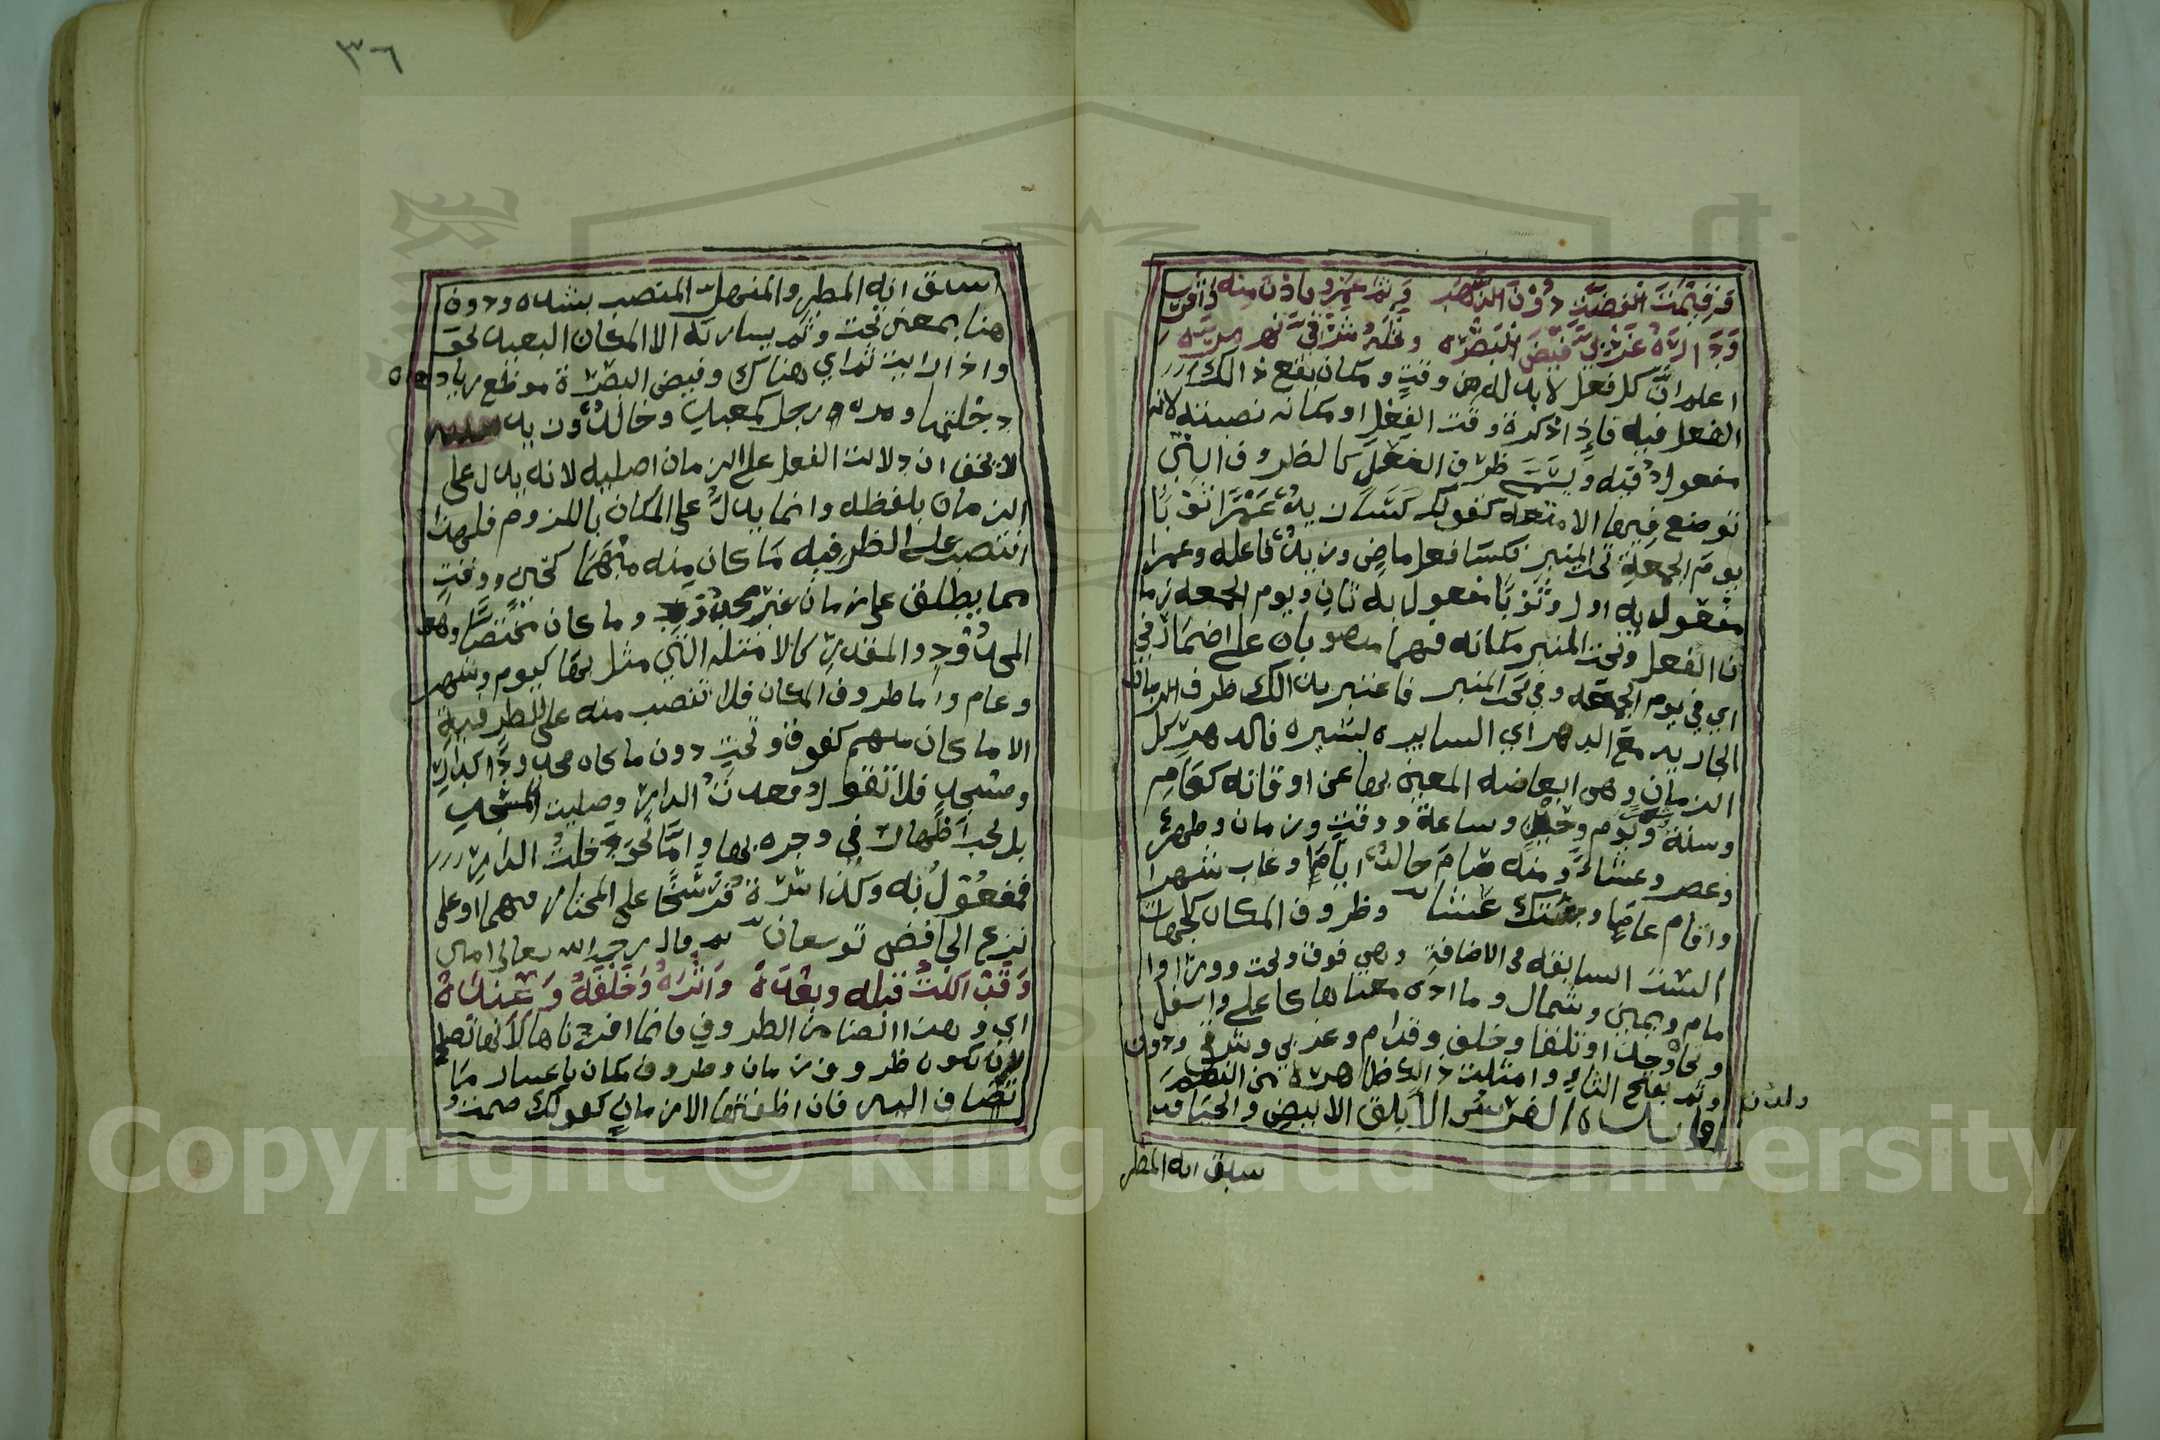 قرفيمت الفضت دون الذهب وثم عمرو فادن منه واقرب
ودارة غربي فيض البصره ونخله شرقي نهر مره
اعلم ان كل فعل لا بد له من وقت ومكان يقع ذالك
الفعل فيه فإذا ذكرة وقت الفعل او مكانه نصبته لانه
مفعول فيه ويسمى ظرف الفعل كالظروف التي
توضع فيها الامتعه كقولك كسا زيد عمرا ثوبا
يوم الجمعة تحت المنبر فكسا فعل ماضي وزيد فاعله وعمرا
مفعول به اول وثوبا مفعول به ثان ويوم الجمعه زما
نا الفعل وتحت المنبر مكانه فهما منصوبان على اضمار في
اي في يوم الجمعه وفي تحت المنبر فاعتبر بذالك ظرف الزمان
الجاريه مع الدهر اي السايره بسيره فالدهر كل
الزمان وهي ابعاضه المعبر بها عن اوقاته كعام
وسنة ويوم وحين وساعة ووقت وزمان وظهر
وعصر وعشاء ومنه صام خالد اياما وغاب شهرا
واقام عاما وجئتك عشاء وظروف المكان كالجهات
الست السابقه في الاضافة وهي فوق وتحت وورا وا
مام ويمين وشمال وما ادى معناها كاعلى واسفل
وتجاه وجلت او تلقا وخلف وقدام وغربي وشرقي ودون
وثم بفتح الثا وامثلت ذالك ظاهره من النظم
والفرس الأبلق الابيض والحيا قد
ولدن
سبق انه المطر
٣٦
اسبق انه المطر والمنهل المنصب بشده ودون
هنا بمعنى تحت وثم يشار به الا المكان البعيد نحو
واذا رايت ثم اي هناك وفيض البصرة موظع زيادة
دجلتها ومره رجل كمعبد وخالد وزيد
لا يخفى ان دلالت الفعل على الزمان اصليه لانه يدل على
الزمان بلفظه وانما يدل على المكان باللزوم فلهذا
انتصب على الظرفيه ما كان منه مبهما كحين ووقت
مما يطلق على زمان غير محدود وما كان مختصا وهو
المحدود والمقدر كالامثله التي مثل بها كيوم وشهر
وعام واما ظروف المكان فلا تنصب منه على الظرفية
الا ما كان مبهم كفوق وتحت دون ما كان محدودا كدار
ومسجد فلا تقول قعدت الدار وصليت المسجد
بل يجب اظهار في وجره بها واما نحو دخلت الدار
فمفعول به وكذا سرة فرسخا على المختار فيهما او على
نزع الخافض توسعا ثم قال رحمه الله تعالى امين
وقد اكلت قبله وبعده واثره وخلفه وعنده
اي وهذا ايضا من الظروف وانما افردناها لأنها تصلح
لان تكون ظروف زمان وظروف مكان باعتبار ما
تضاف اليه فان اظفتها الا زمان كقولك صمت